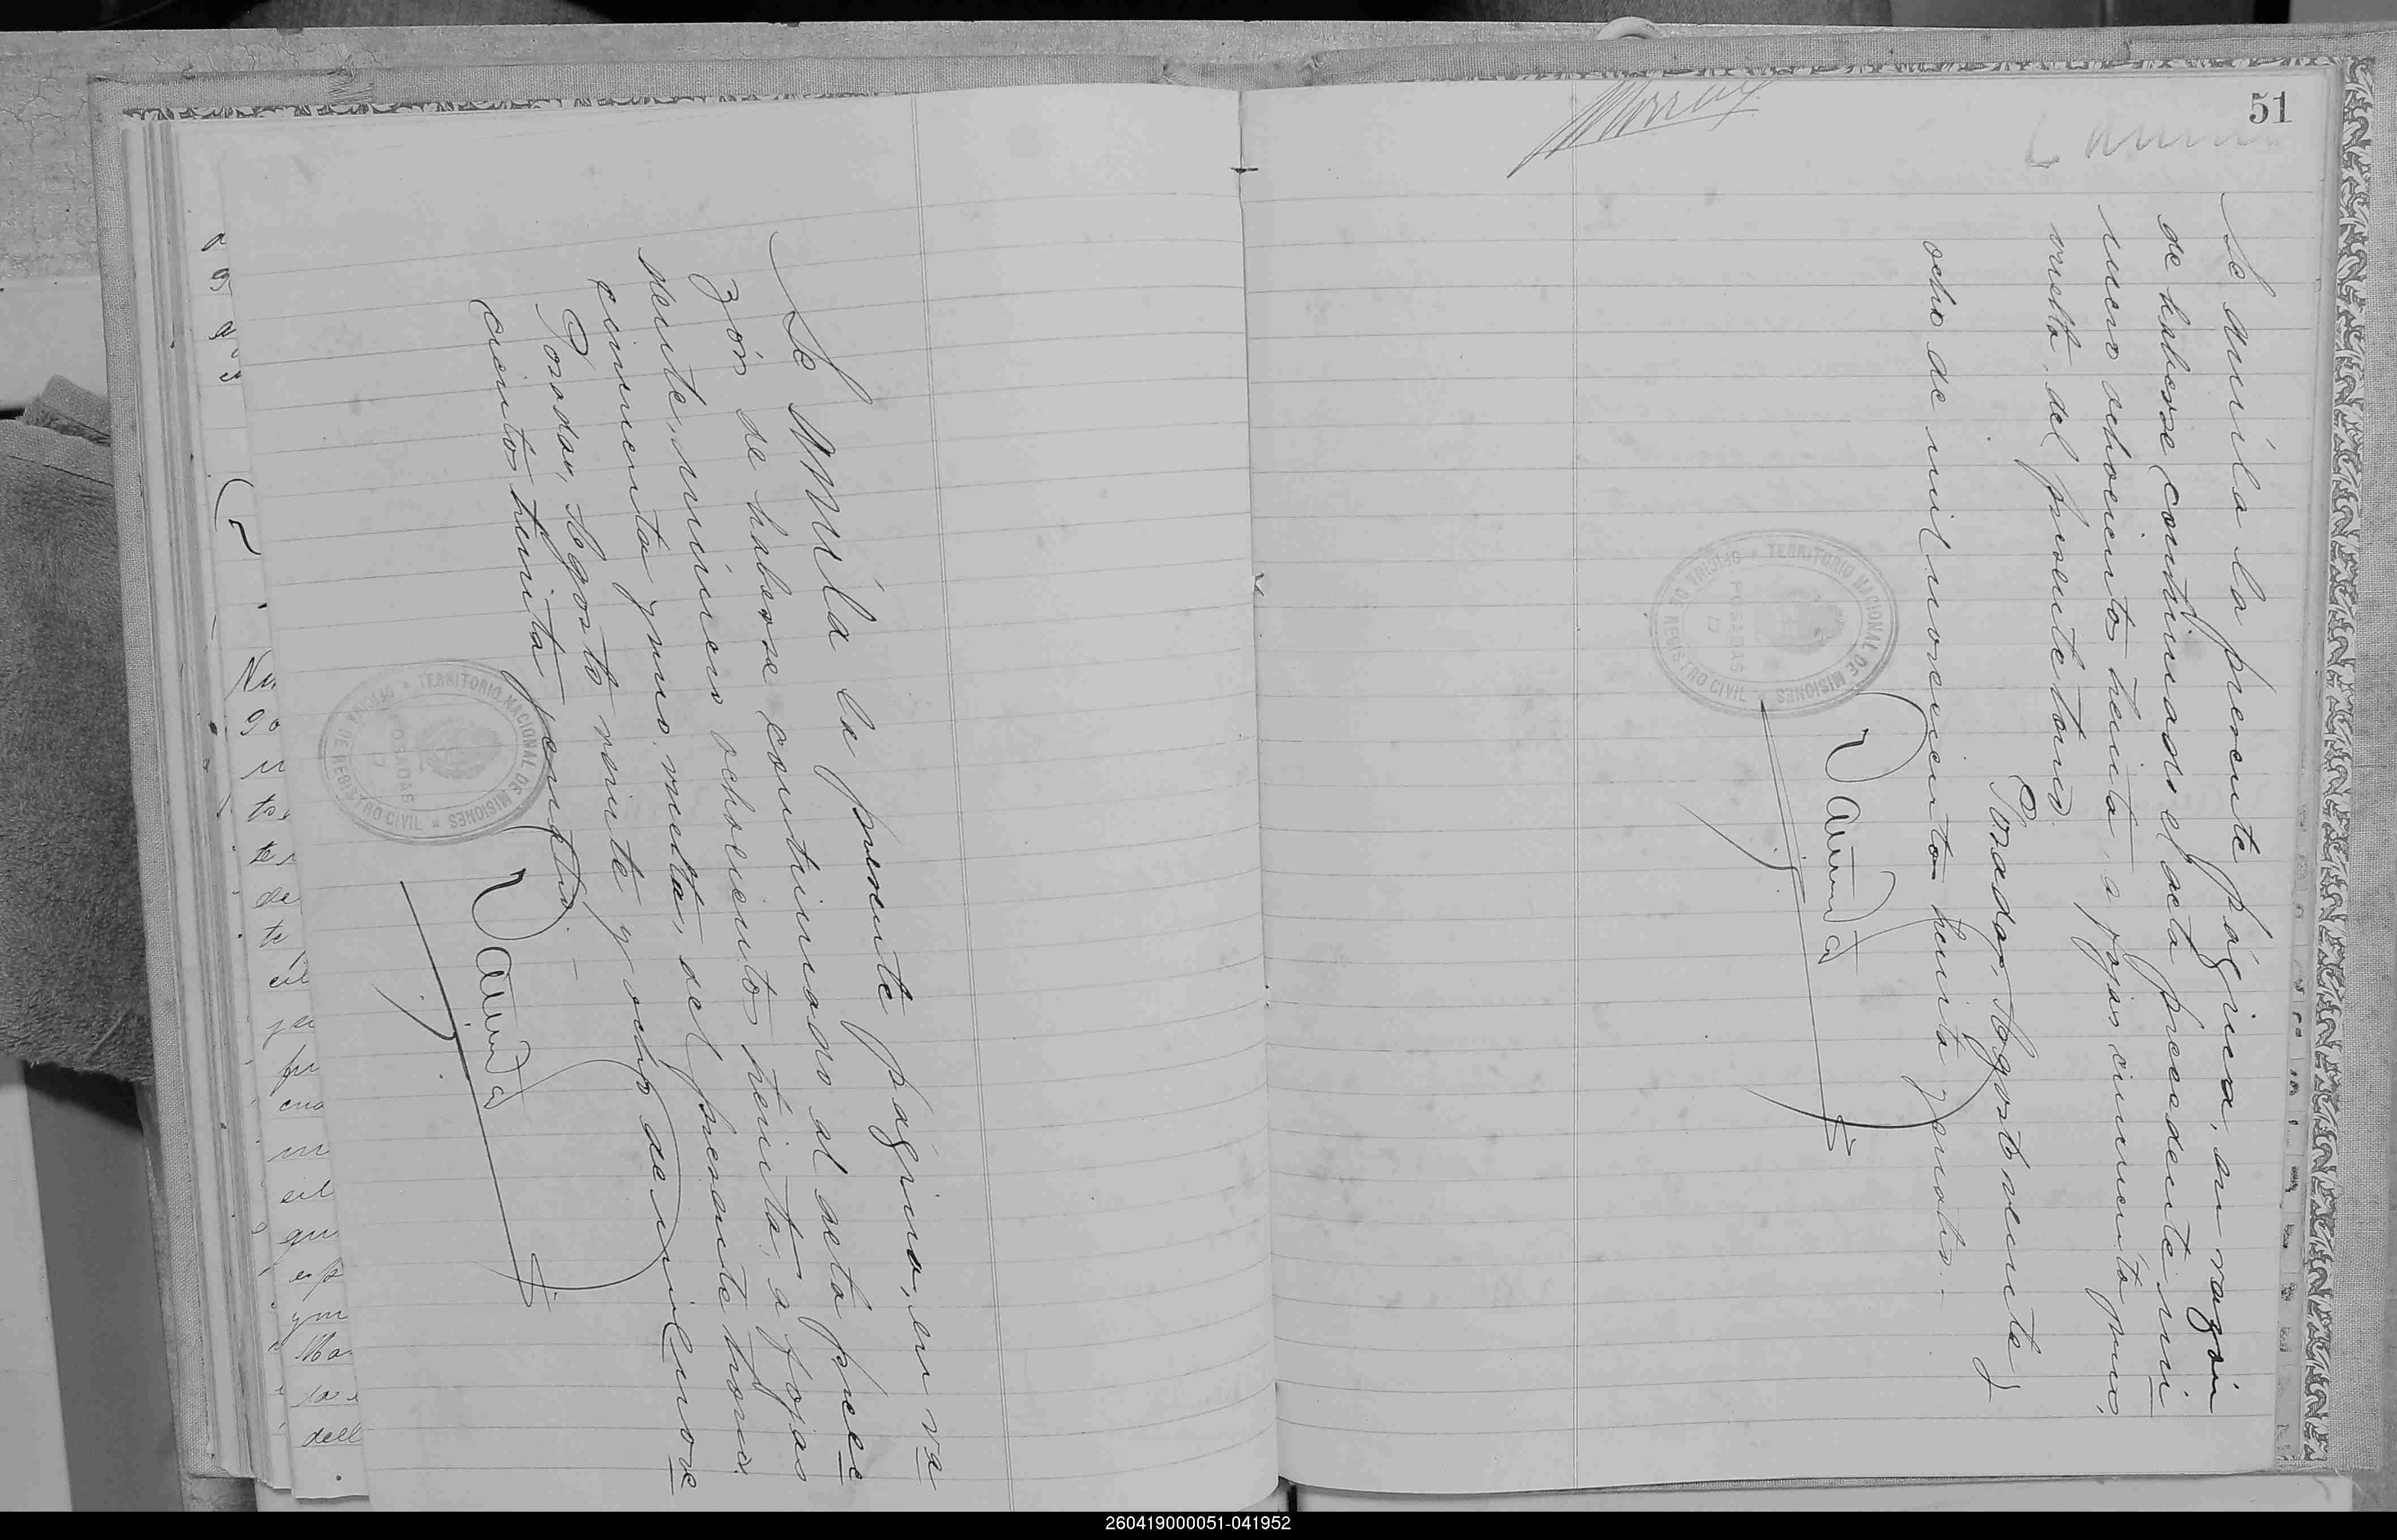 Se anúla la presente página, en ra
zón de haberse continuado el acta prece
dente, número ochocientos treinta, a fojas
cincuenta y uno vuelta, del presente tomo.
Posadas, Agosto veinte y ocho de mil nove
cientos treinta y cuatro.-
TERRITORIO NACIONAL DE MISIONES
OFICINA DE REGISTRO CIVIL
POSADAS
51
Se anúla la presente página, en razón
de haberse continuado el acta precedente nú
mero ochocientos treinta, a fojas cincuenta y uno,
vuelta, del presente tomo.
Posadas, Agosto veinte y
ocho de mil novecientos treinta y cuatro.-
TERRITORIO NACIONAL DE MISIONES
OFICINA DE REGISTRO CIVIL
POSADAS
260419000051-041952